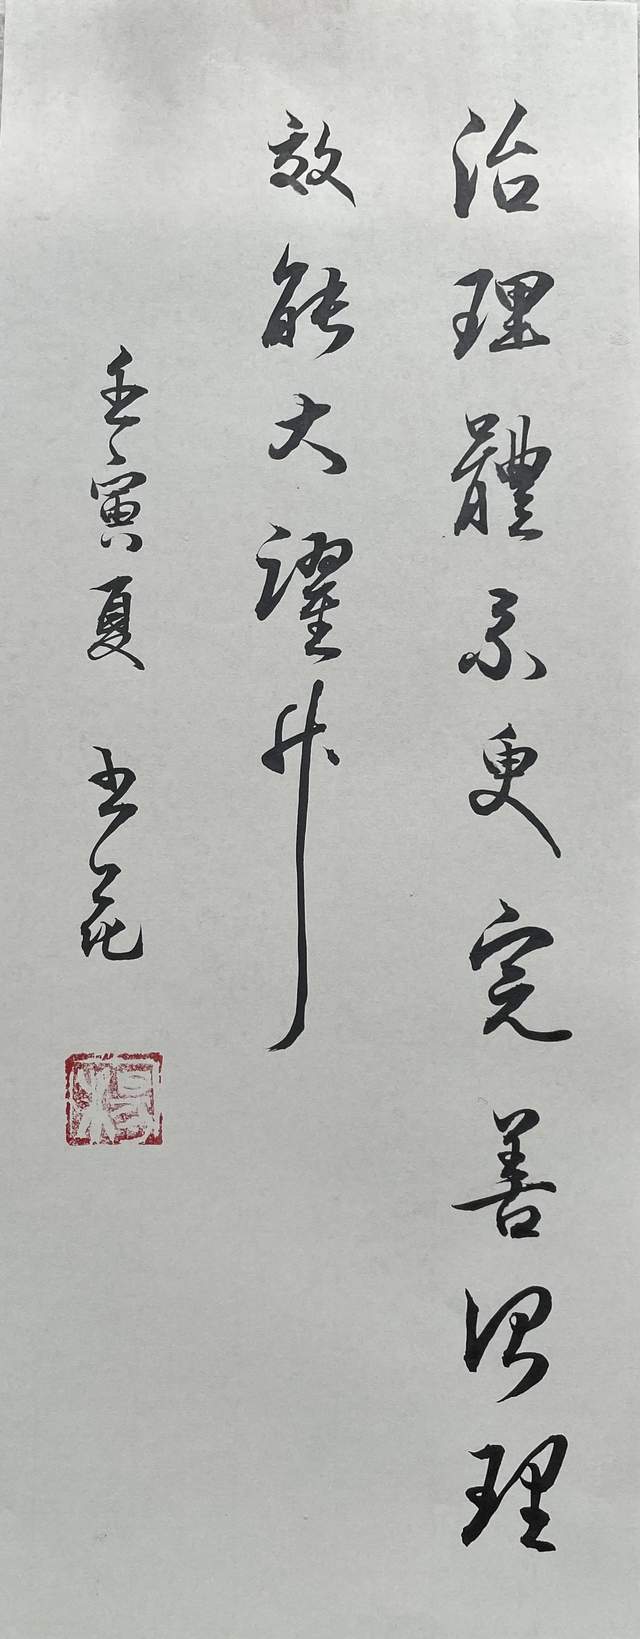 治理體系更完善治理
效能大躍升
壬寅夏